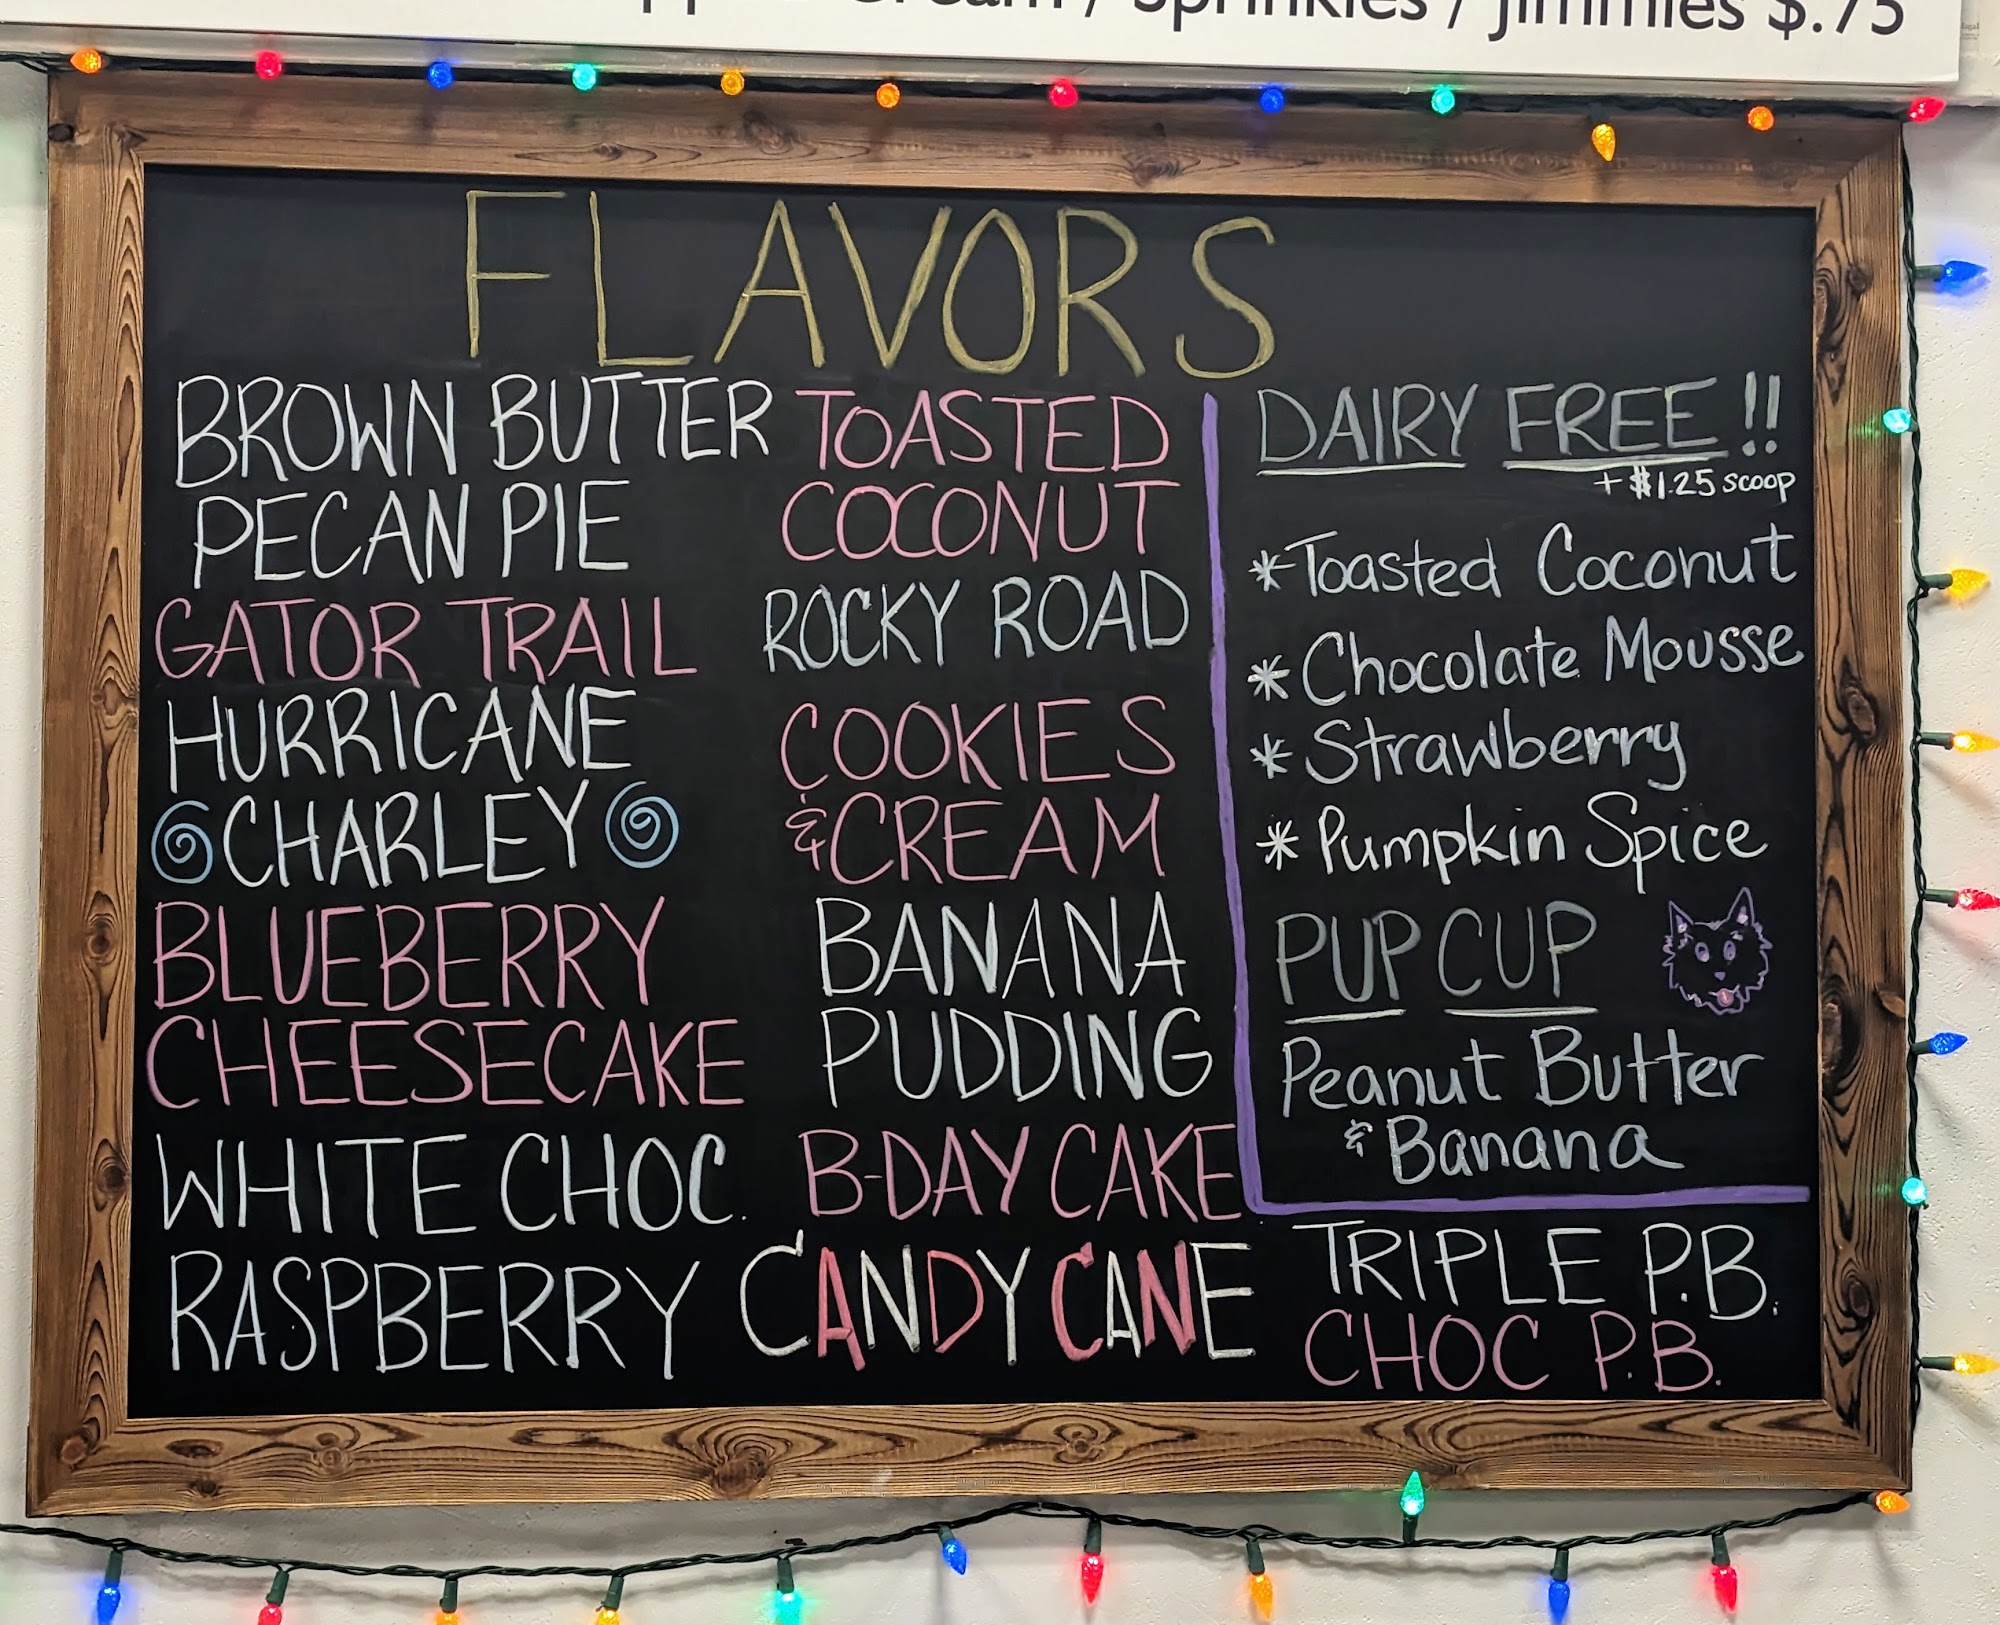 Cream / Sprinkles / Jimmies $.75
FLAVORS
BROWN BUTTER
PECAN PIE
GATOR TRAIL
HURRICANE
CHARLEY
BLUEBERRY
CHEESECAKE
WHITE CHOC.
RASPBERRY
TOASTED
COCONUT
ROCKY ROAD
COOKIES
& CREAM
BANANA
PUDDING
B-DAY CAKE
CANDY CANE
DAIRY FREE!!
+ $1.25 scoop
* Toasted Coconut
* Chocolate Mousse
* Strawberry
* Pumpkin Spice
PUP CUP
Peanut Butter
& Banana
TRIPLE P.B.
CHOC P.B.